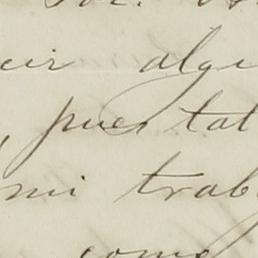 cir algu
, pues tal
mi trab
come